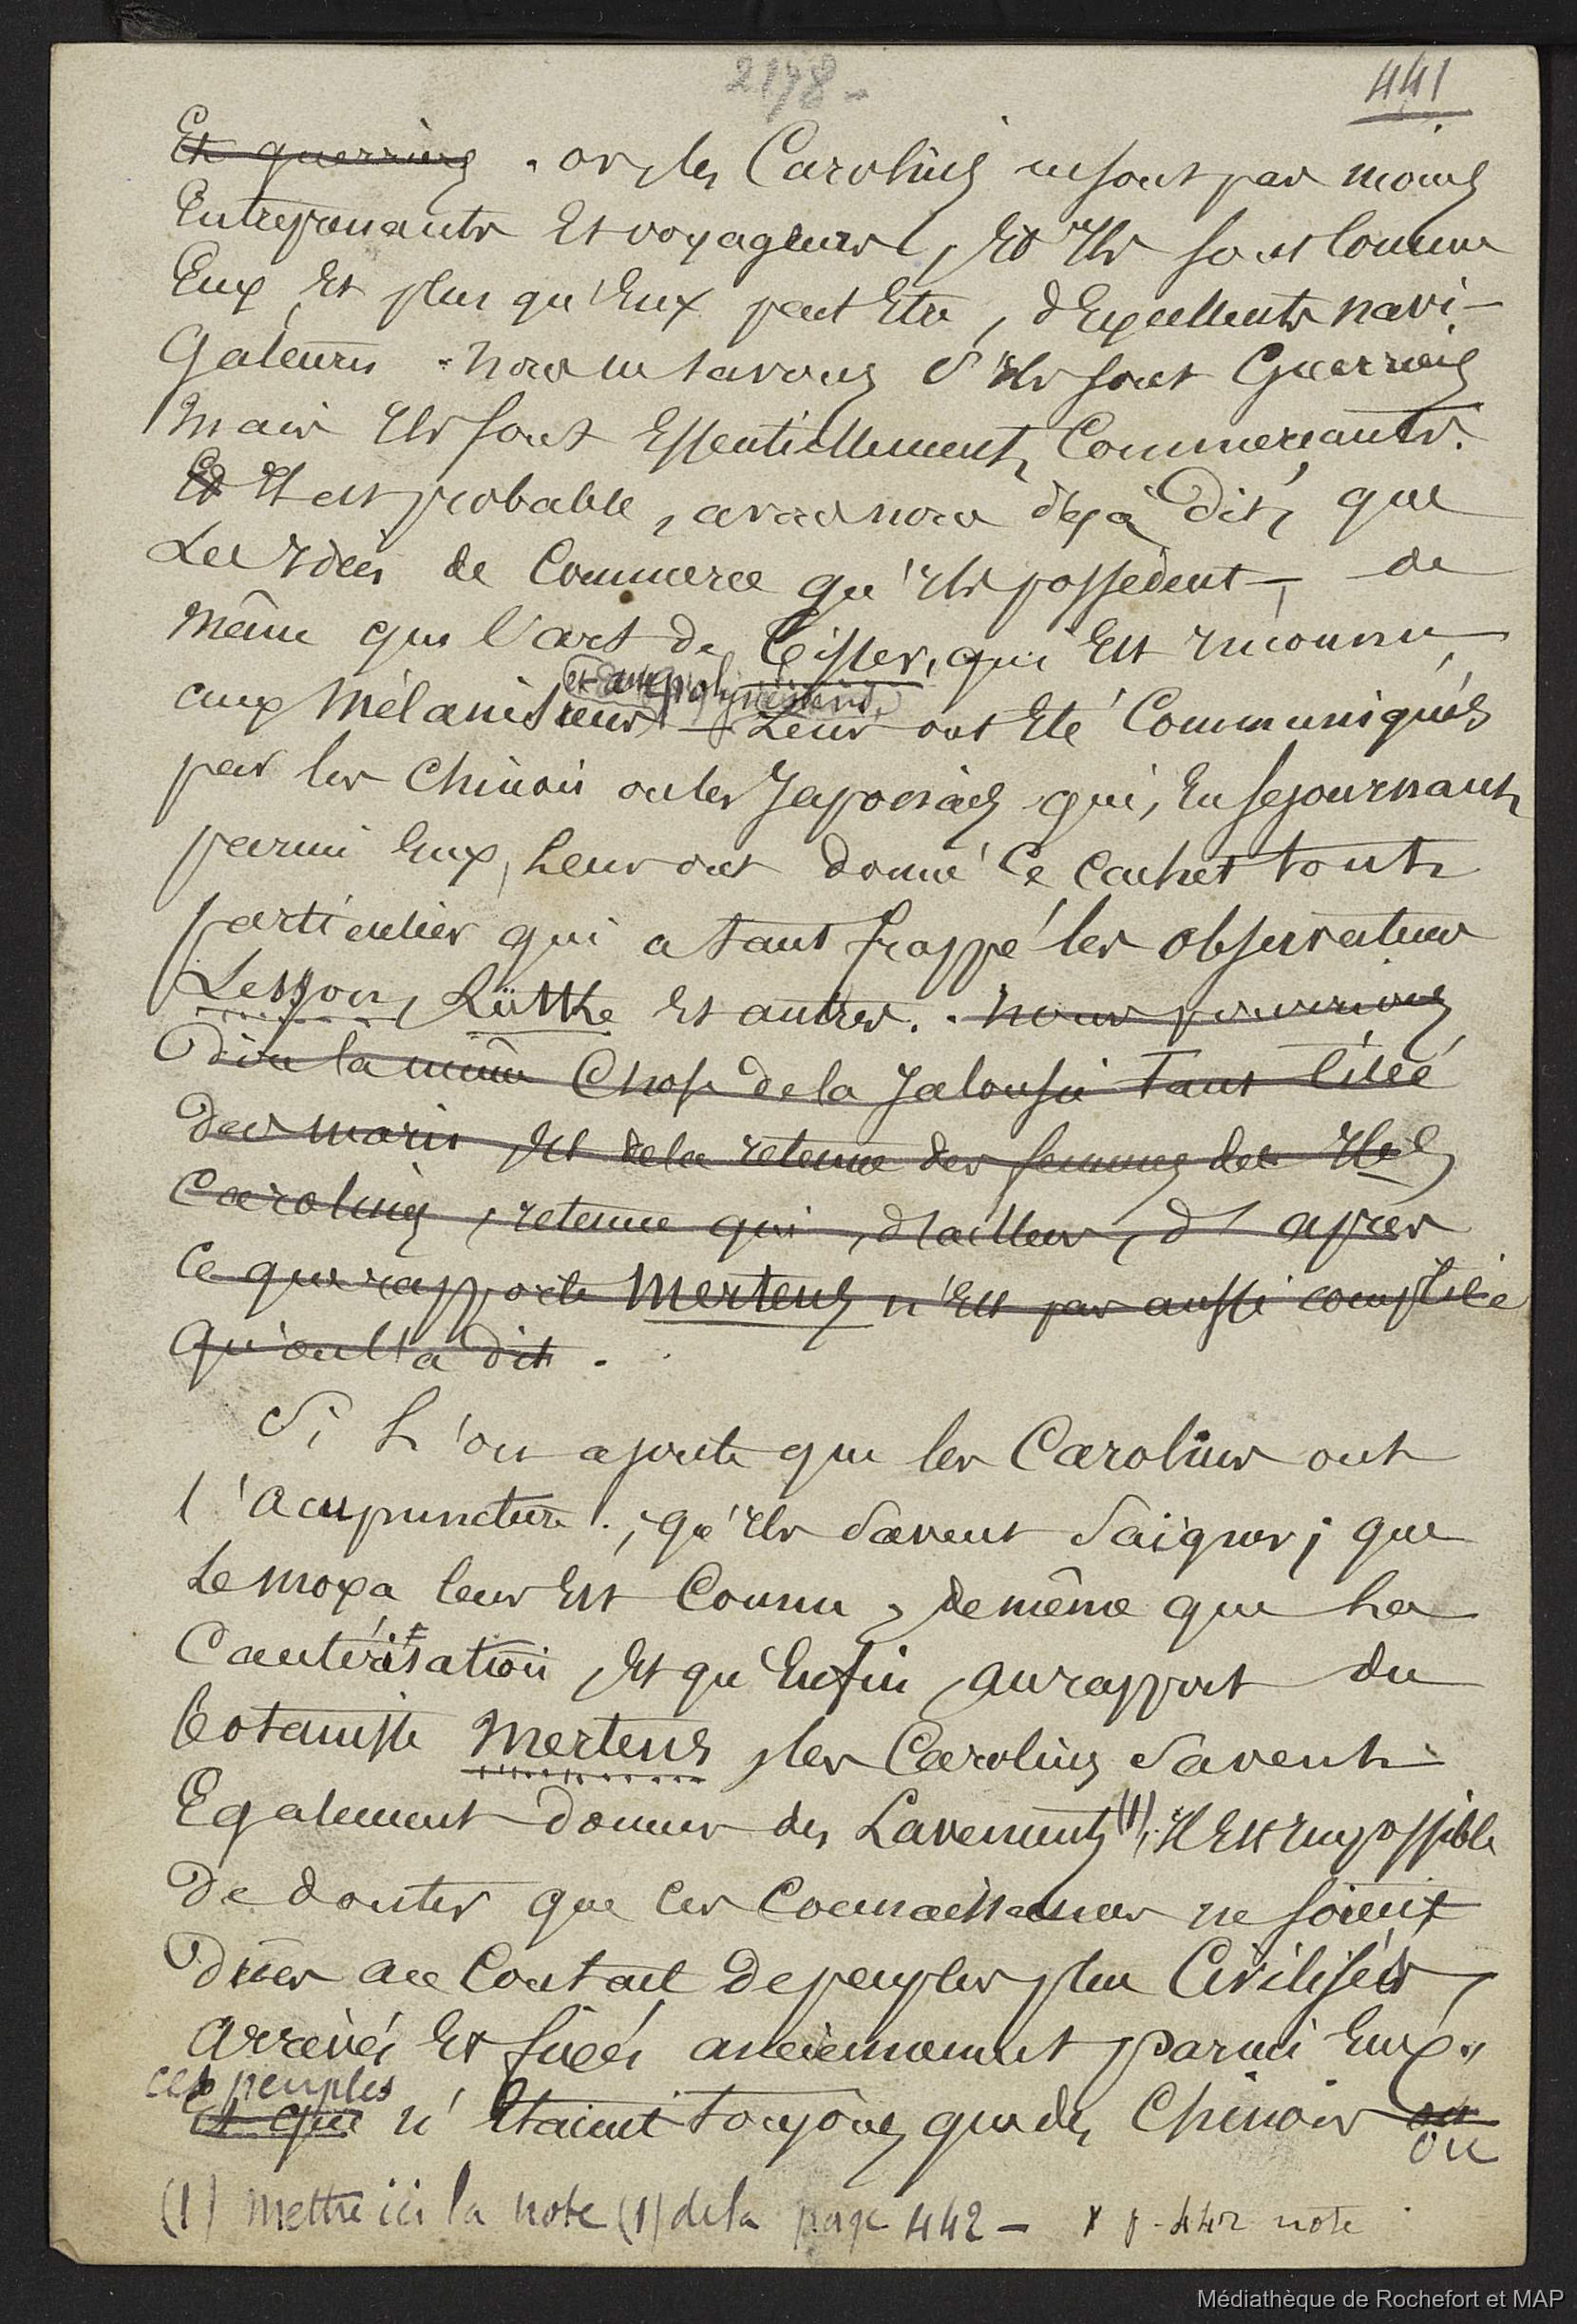 2178 -
441
Et guerriers. or, les Carolins ne sont pas moins
Entreprenants Et voyageurs, Et Ils sont Comme
Eux, Et plus qu'Eux peut Etre, d'Excellents navi-
gateurs. nous ne savons s'Ils sont Guerriers
mais Ils sont Essentiellement Commerçants.
Et Il est probable, avons nous déjà dit, que
Les Idées de Commerce qu'Ils possèdent, de
même que l'art de Tisser, qui Est Inconnu
et aux polynésiens
aux Mélanésiens Leur ont Eté Communiqués
par les Chinois ou les Japonais qui, En séjournant
parmi Eux, Leur ont donné Ce Cachet tout
particulier qui a tant frappé les observateurs
Lesson, Lütke Et autres. nous pourrions
Dire la même Chose de la Jalousie tant Citée
Des maris, Et de la retenue des femmes des Iles
Carolines, retenue qui, d'ailleurs, d'après
Ce que rapporte Mertens n'Est pas aussi complète
qu'on l'a dit.
Si L'on ajoute que les Carolins ont
l'acupuncture; qu'Ils Savent Saigner; que
Le moxa leur Est Connu, de même que La
Cautérisation, Et qu'Enfin, au rapport du
botaniste Mertens, les Carolins Savent
Egalement donner des Lavements (1), Il Est Impossible
De douter que ces Connaissances ne soient
Dues au Contact de peuples plus Civilisés,
arrivés Et fixés anciennement parmi Eux.
ces peuples
Et qui n'Etaient toujours que des Chinois ou
ou
(1) Mettre ici la note (1) de la page 442 - x p. 442 note
Médiathèque de Rochefort et MAP